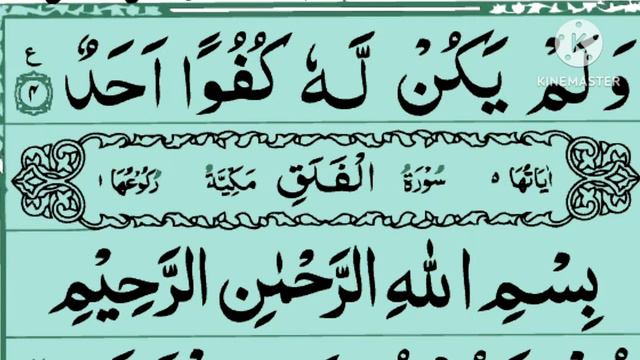 وَلَمْ يَكُنْ لَّهٗ كُفُوًا اَحَدٌ ۴ ع
KINEMASTER
اٰيَاتُهَا ۵ سُوْرَةُ الْفَلَقِ مَكِّيَّةٌ رُكُوْعُهَا ۱
بِسْمِ اللهِ الرَّحْمٰنِ الرَّحِيْمِ